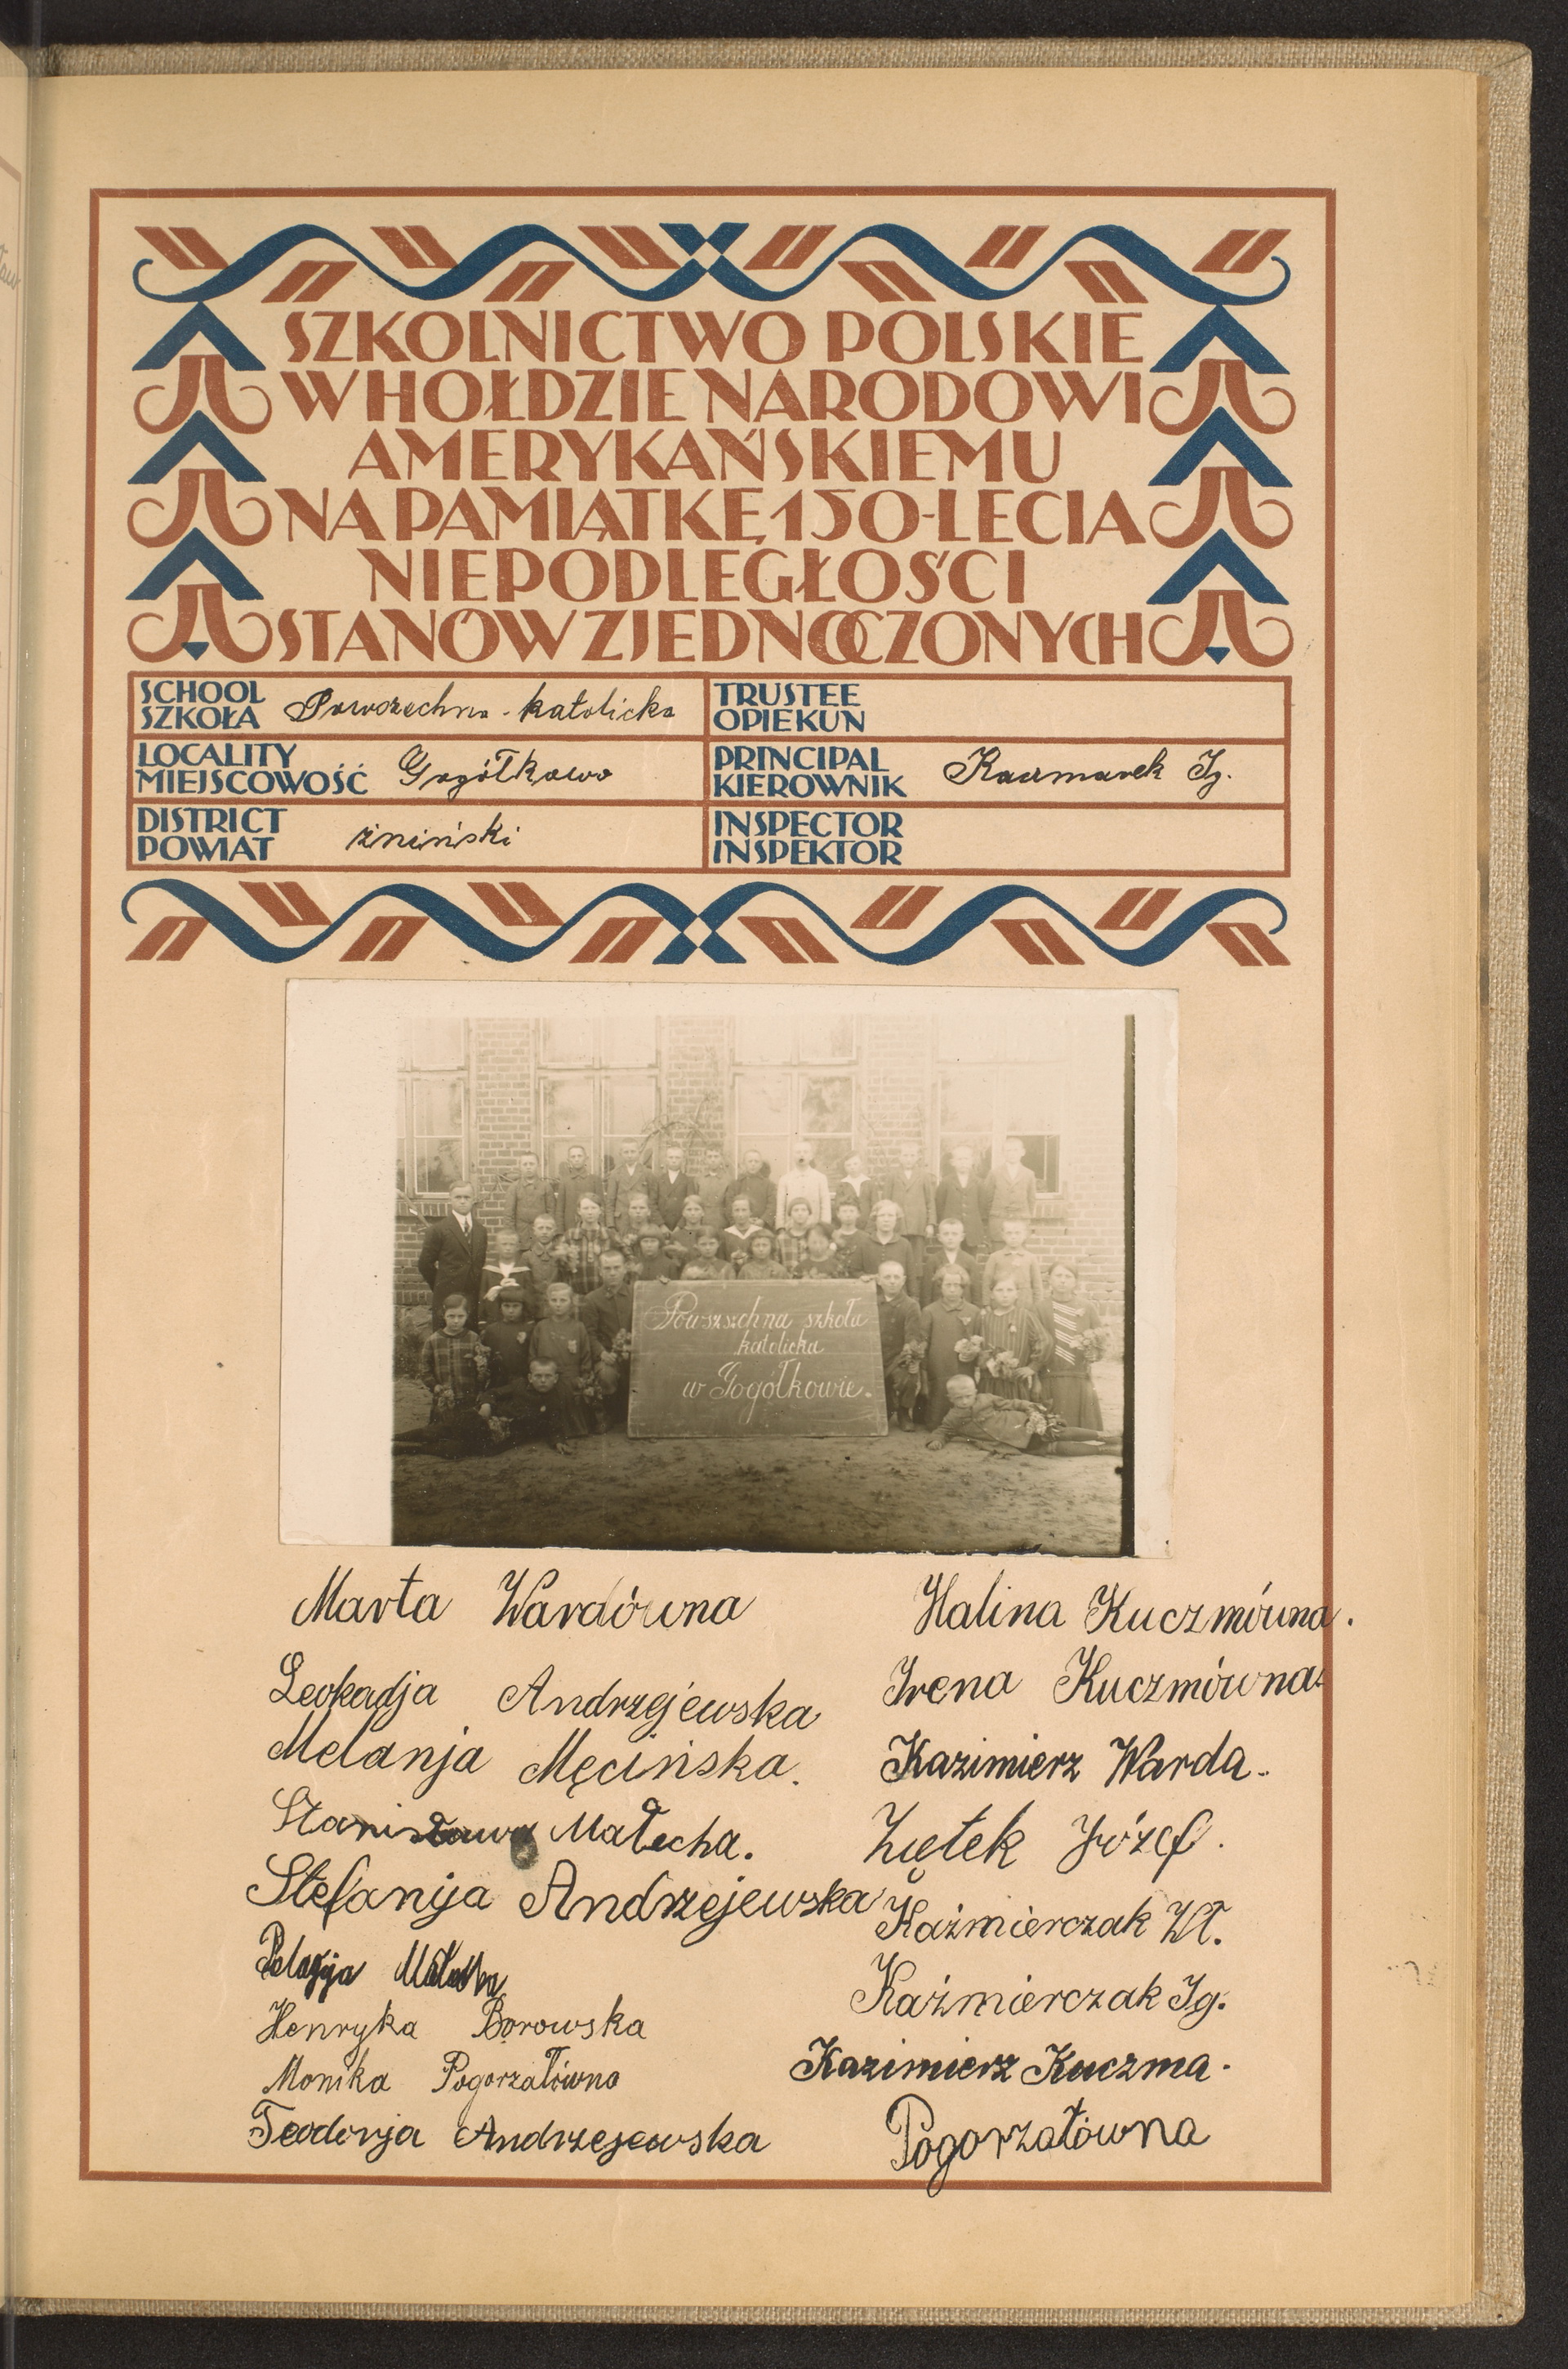 SZKOLNICTWO POLSKIE
W HOŁDZIE NARODOWI
AMERYKAŃSKIEMU
NA PAMIĄTKĘ 150-LECIA
NIEPODLEGŁOŚCI
STANÓW ZJEDNOCZONYCH
SCHOOL
SZKOŁA Powszechna - katolicka
TRUSTEE
OPIEKUN
LOCALITY
MIEJSCOWOŚĆ Gogółkowo
PRINCIPAL
KIEROWNIK Kaczmarek Ig.
DISTRICT
POWIAT żniński
INSPECTOR
INSPEKTOR
Powszechna szkoła
katolicka
w Gogółkowie.
Marta Wardówna
Leokadja Andrzejewska
Melanja Męcińska.
Stanisława Małecha.
Stefanija Andrzejewska
Pelagja
Henryka Borowska
Monika Pogorzałówna
Teodorja Andrzejewska
Halina Kuczmówna.
Irena Kuczmówna.
Kazimierz Warda.
Ziętek Józef.
Kaźmierczak Wł.
Kaźmierczak Ig.
Kazimierz Kuczma.
Pogorzałówna